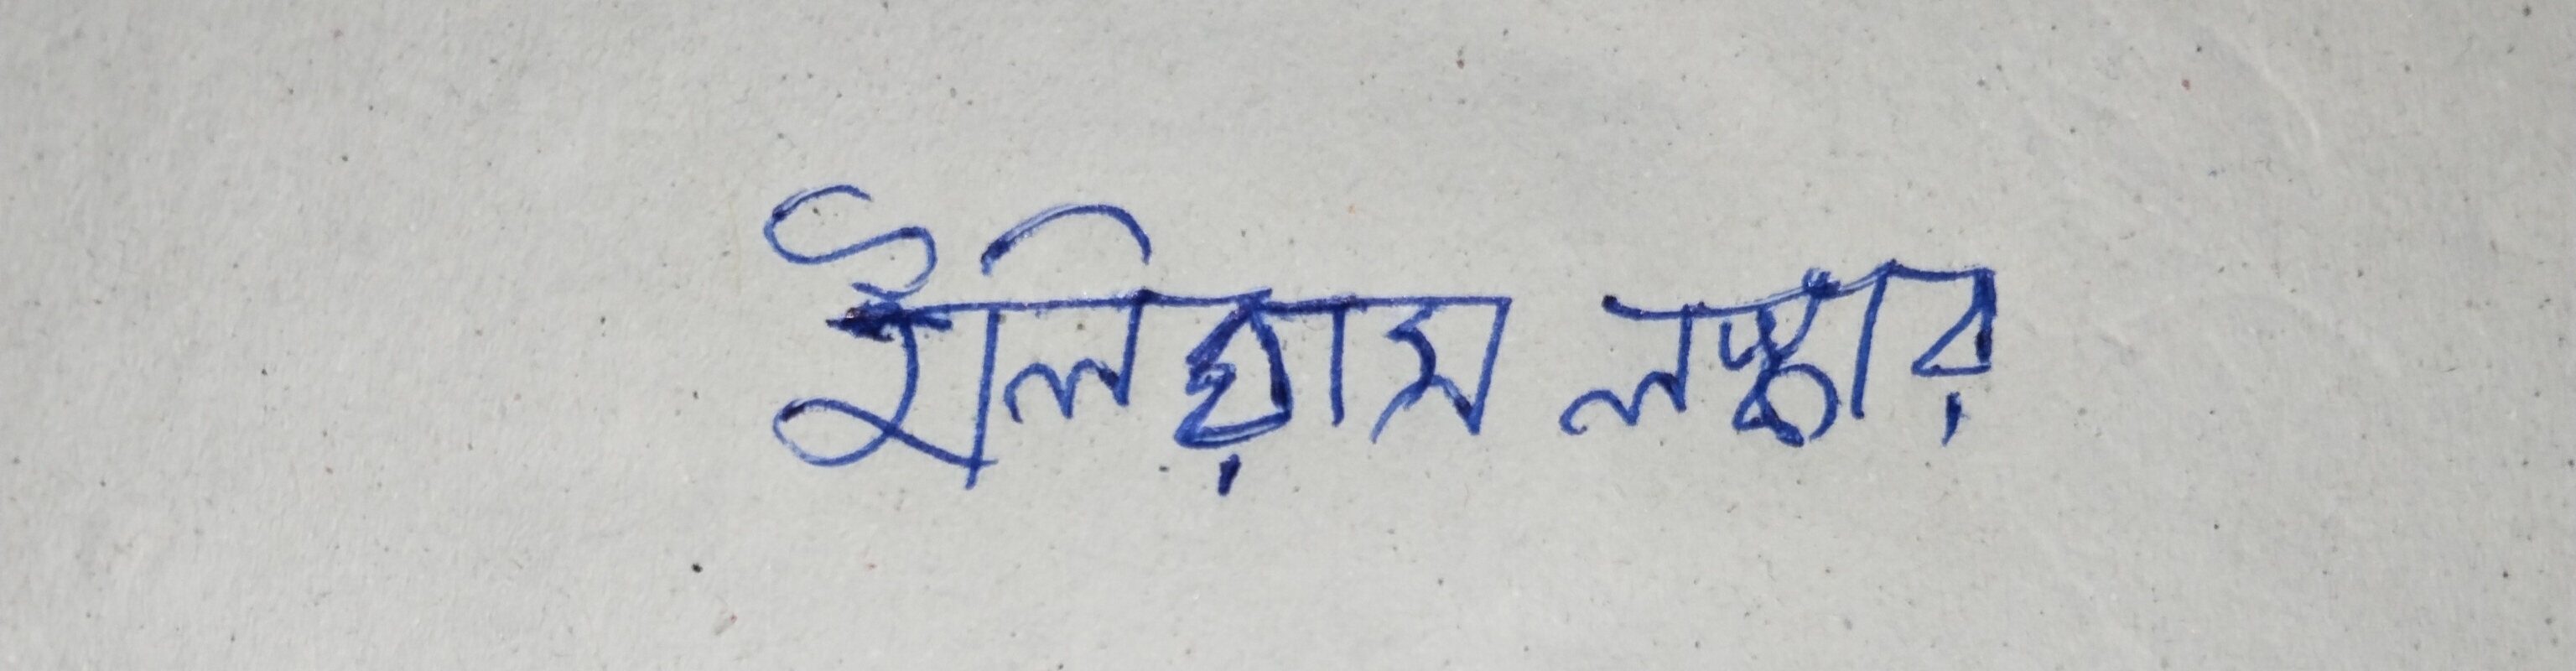 ইলিয়াস লস্কার